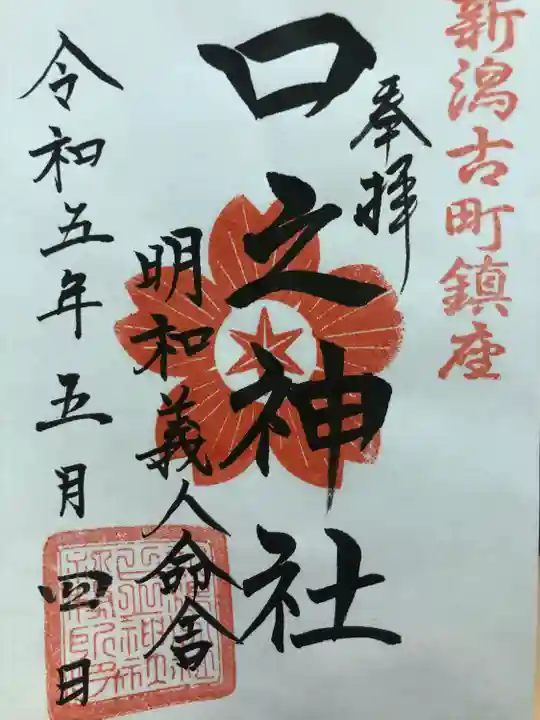 新潟古町鎮座
奉拝
口之神社
明和義人命舎
令和五年五月四日